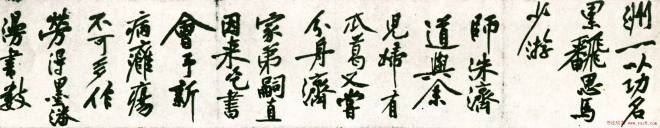 洲一以功名
累飜思馬
少游
師洙濟
道與余
兒婦有
瓜葛又嘗
分舟濟
家弟嗣直
因来乞書
會予新
病癰瘍
不可多作
勞得墨瀋
漫書數